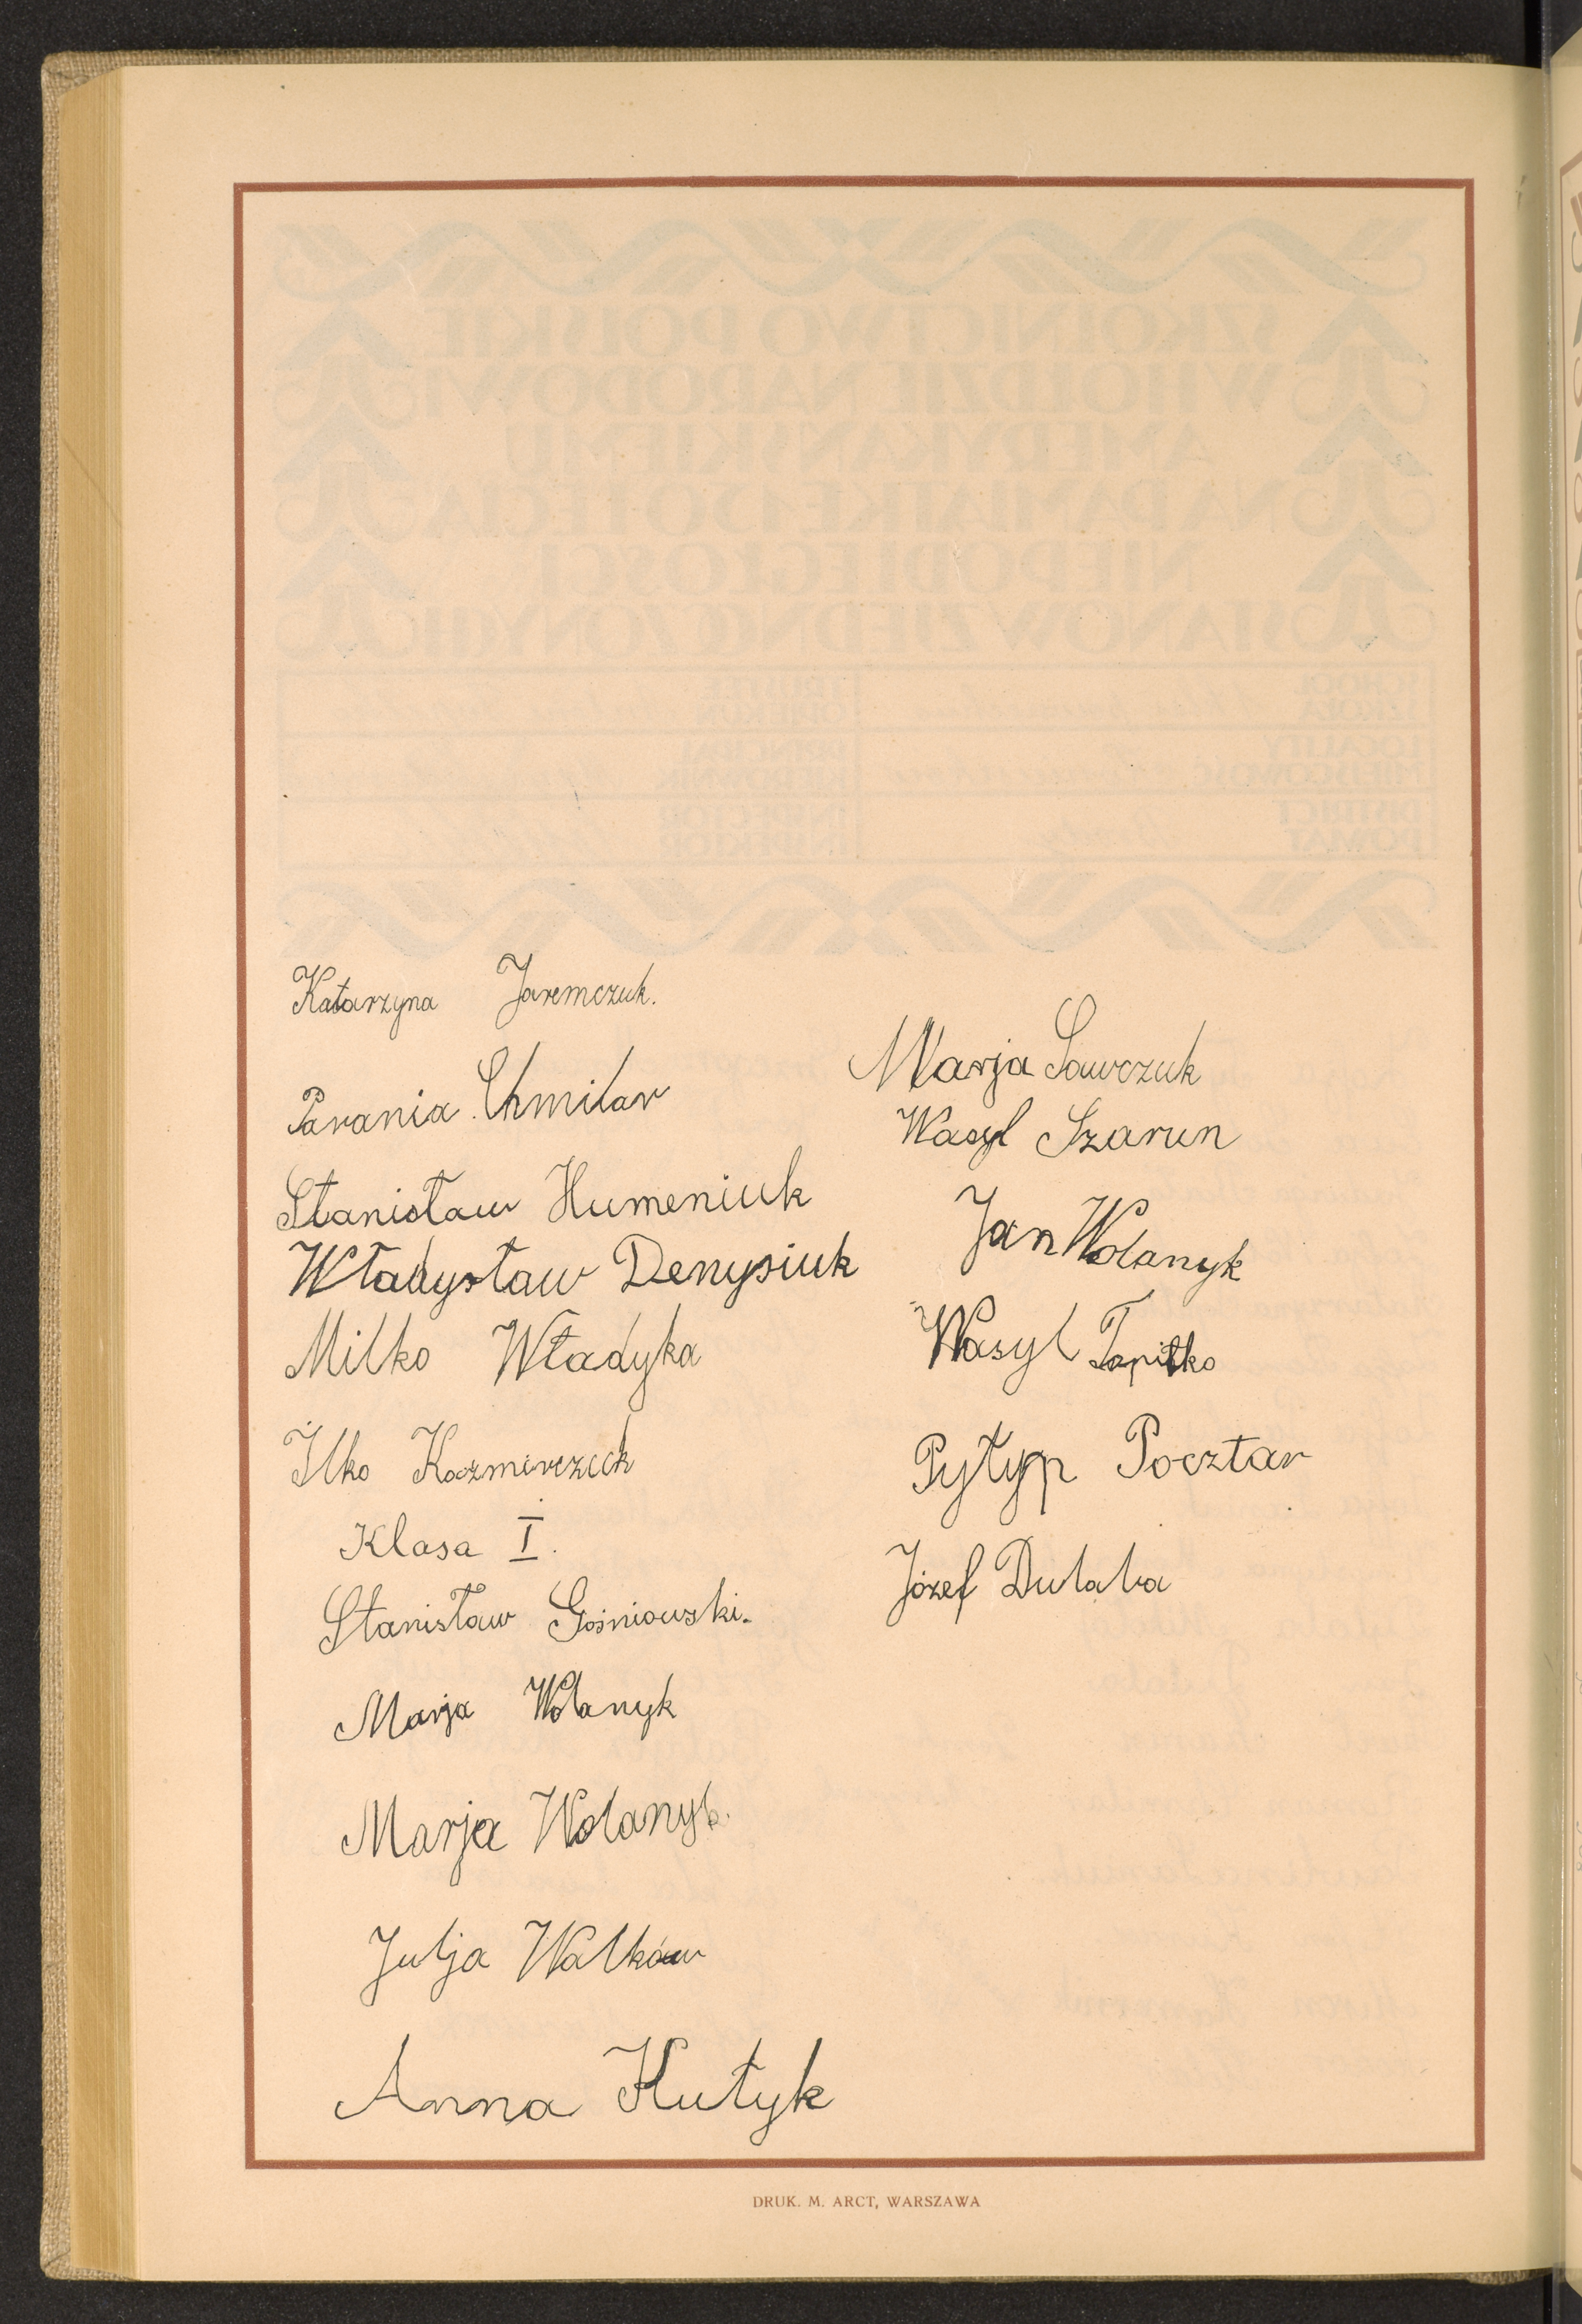 Katarzyna Jaremczuk.
Parania Chmilar
Stanisław Humeniuk
Władysław Denysiuk
Milko Władyka
Ilko Kaźmirczuk
Klasa I.
Stanisław Gośniowski.
Marja Wolanyk
Marja Wolanyk.
Julja Walków
Anna Hutyk
Marja Sawczuk
Wasyl Szarun
Jan Wolanyk
Wasyl Tapitko
Pyłyp Pocztar
Józef Dulaba
DRUK. M. ARCT, WARSZAWA